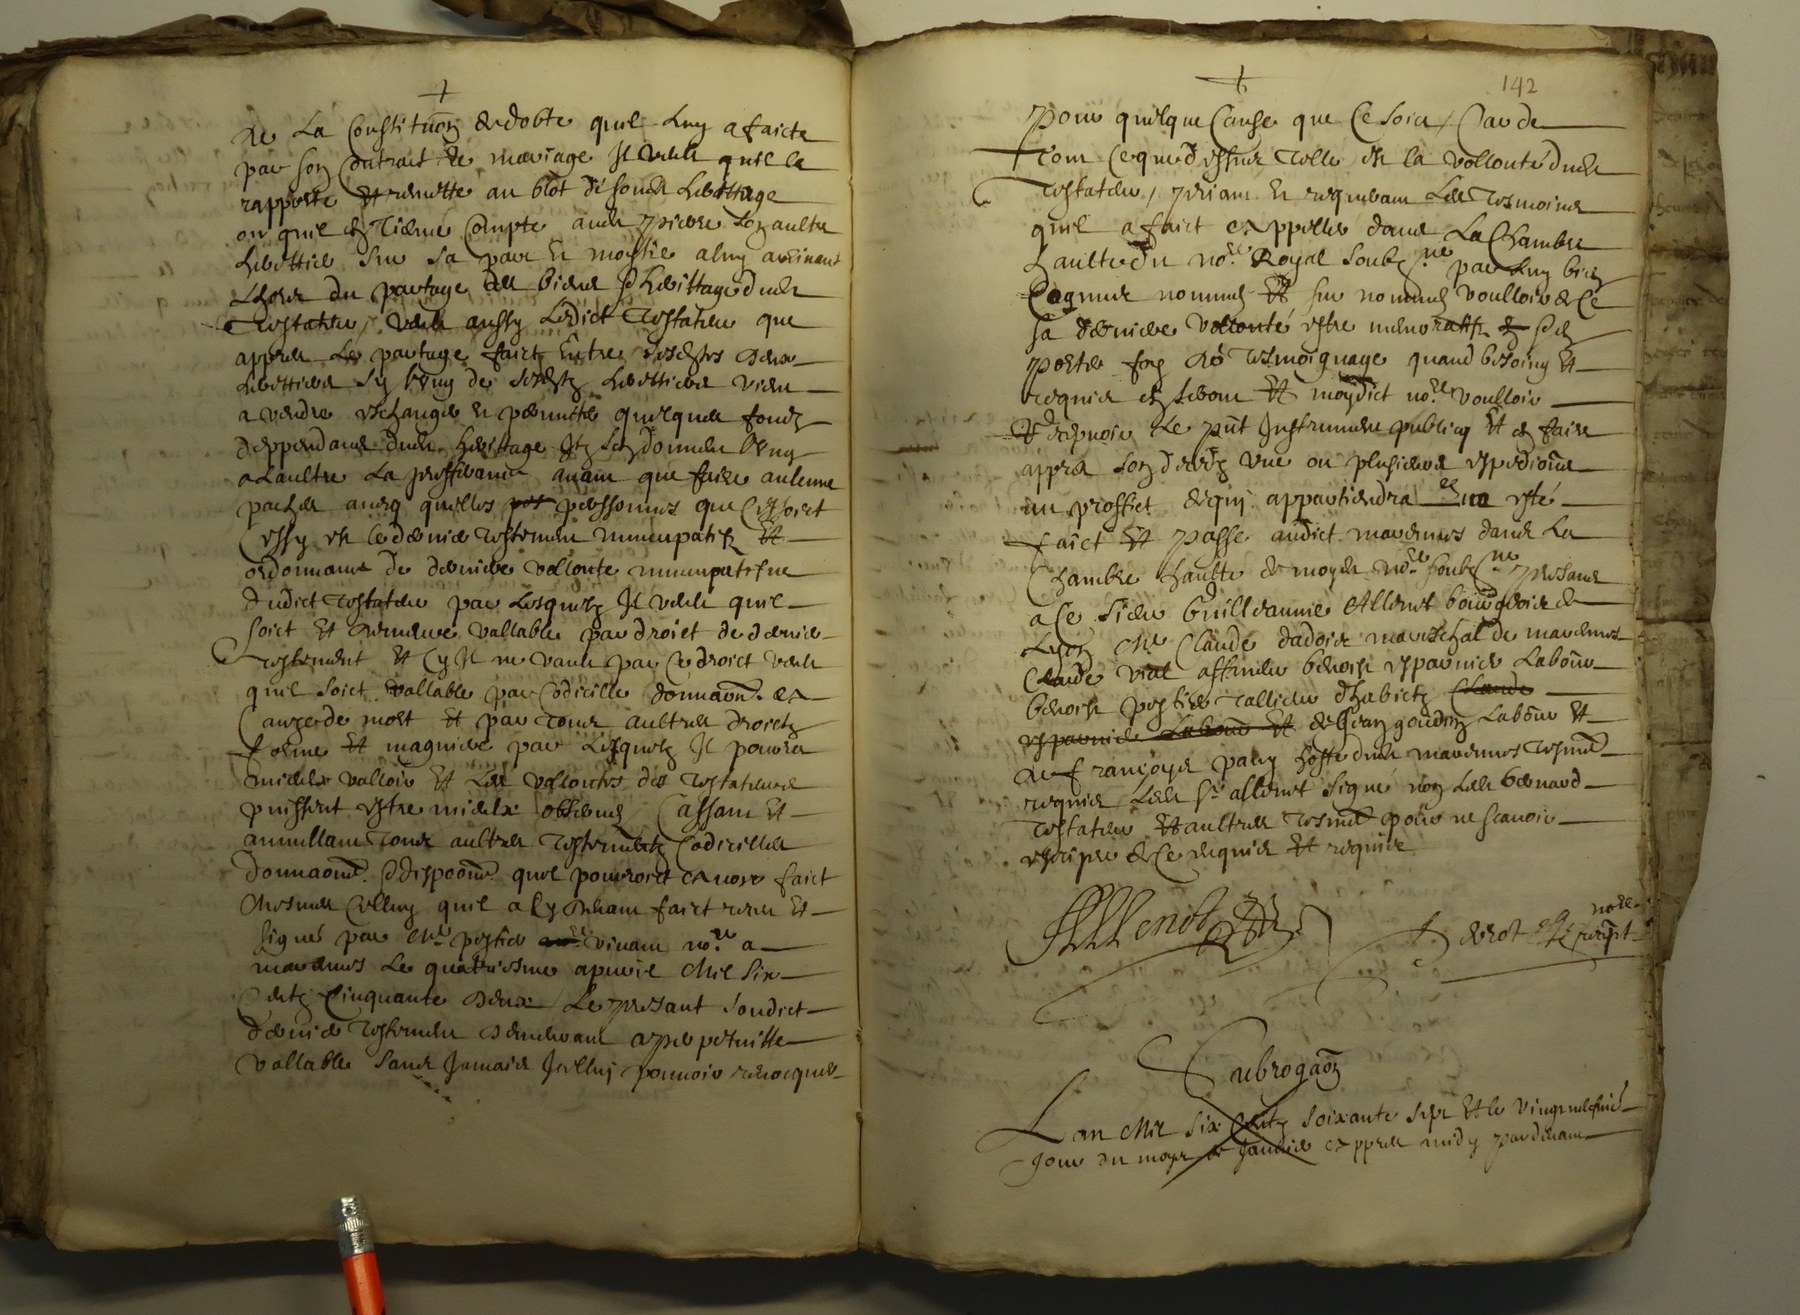 de La Constituõn de dobte quil Luy a faicte
par son Contraict de mariage Il veult quil le
rapporte Et remette au blot de soud. herittage
ou quil en tienne Compte aud. pierre son aultre
herettier sur sa part Et moytie a luy advenant
Lhors du partage des biens d'herittage dud.
Testateur, veult aussy Ledict Testateur que
appres Le partage faict Entre sesdits deux
herettiers sy lung de sesdits herettiers vient
a vendre eschanger et permutter quelques fondz
deppendants dud. herittage Ilz sen donnent lung
a Laultre La presferance avant que faire aulcune
pache avecq quelles personnes que Ce soict
Cessy est le dernier testement nuncupatif Et
ordonnance de derniere vollonte nuncupatifve
dudict testateur par Lesquelz Il veult quil
soict Et demeure vallable par droict de dernier
Testement Et Cy Il ne vault par Ce droict veult
quil soict vallable par Codicille donnaõn a
Cause de mort Et par tous aultres droictz
forme Et magniere par Lesquelz Il pourra
mieulx valloir Et Les vollontes des testateurs
puissent estre mieulx observes Cassant Et
annullant tous aultres Testementz Codicilles
donnaõns dispoõns quil pourroict avoir faict
Mesmes Celluy quil a Cy devant faict receu Et
signé par Me vivant nore a
mardenos Le quatriesme apvril Mil Six
Centz Cinquante deux Le presant soudict
dernier testement demeurant a perpetuitte
vallable sans Jamais Icelluy pouvoir revocquer
142
pour quelque Cause que Ce soict, Car de
tout Ce que dessus telle est la vollonté dud.
testateur, priant Et requerant Les tesmoins
quil a faict appeller dans La Chambre
haulte du nore Royal soubzne par Luy bien
Cogneus nommes Et surnommes voulloir de Ce
sa derniere vollonté estre memoratifz Et den
porter foy Et tesmoignage quand besoing Et
requis en seront Et moydict nore voulloir
Recepvoir Le pnt Instrument publicq Et en faire
appres son deceds une ou plusieurs expedions
au proffict de qui appartiendra esté
faict Et passé audict mardenos dans La
Chambre haulte de moyd. nore soubzne presants
a Ce Sieur Guilleaume Allenet bourgeois de
Lyon Me Claude dadoir mareschal de mardenos
Claude vial benoist esparvier Laboure
benoist tallieur d'habictz Claude
esparvier Laboure Et de Jean goudin Laboure Et
de françoys paley hoste dud. mardenos tesmoins
requis Led. Sr allenet signé non Led. benard
testateur Et aultres tesmoins pour ne scavoir
escripre de Ce enquis Et requis
Allenet
nore
Subrogaõn
Lan Mil Six Centz Soixante sept Et le vingt neufvie
Jour du moys de Janvier appres midy pardevant